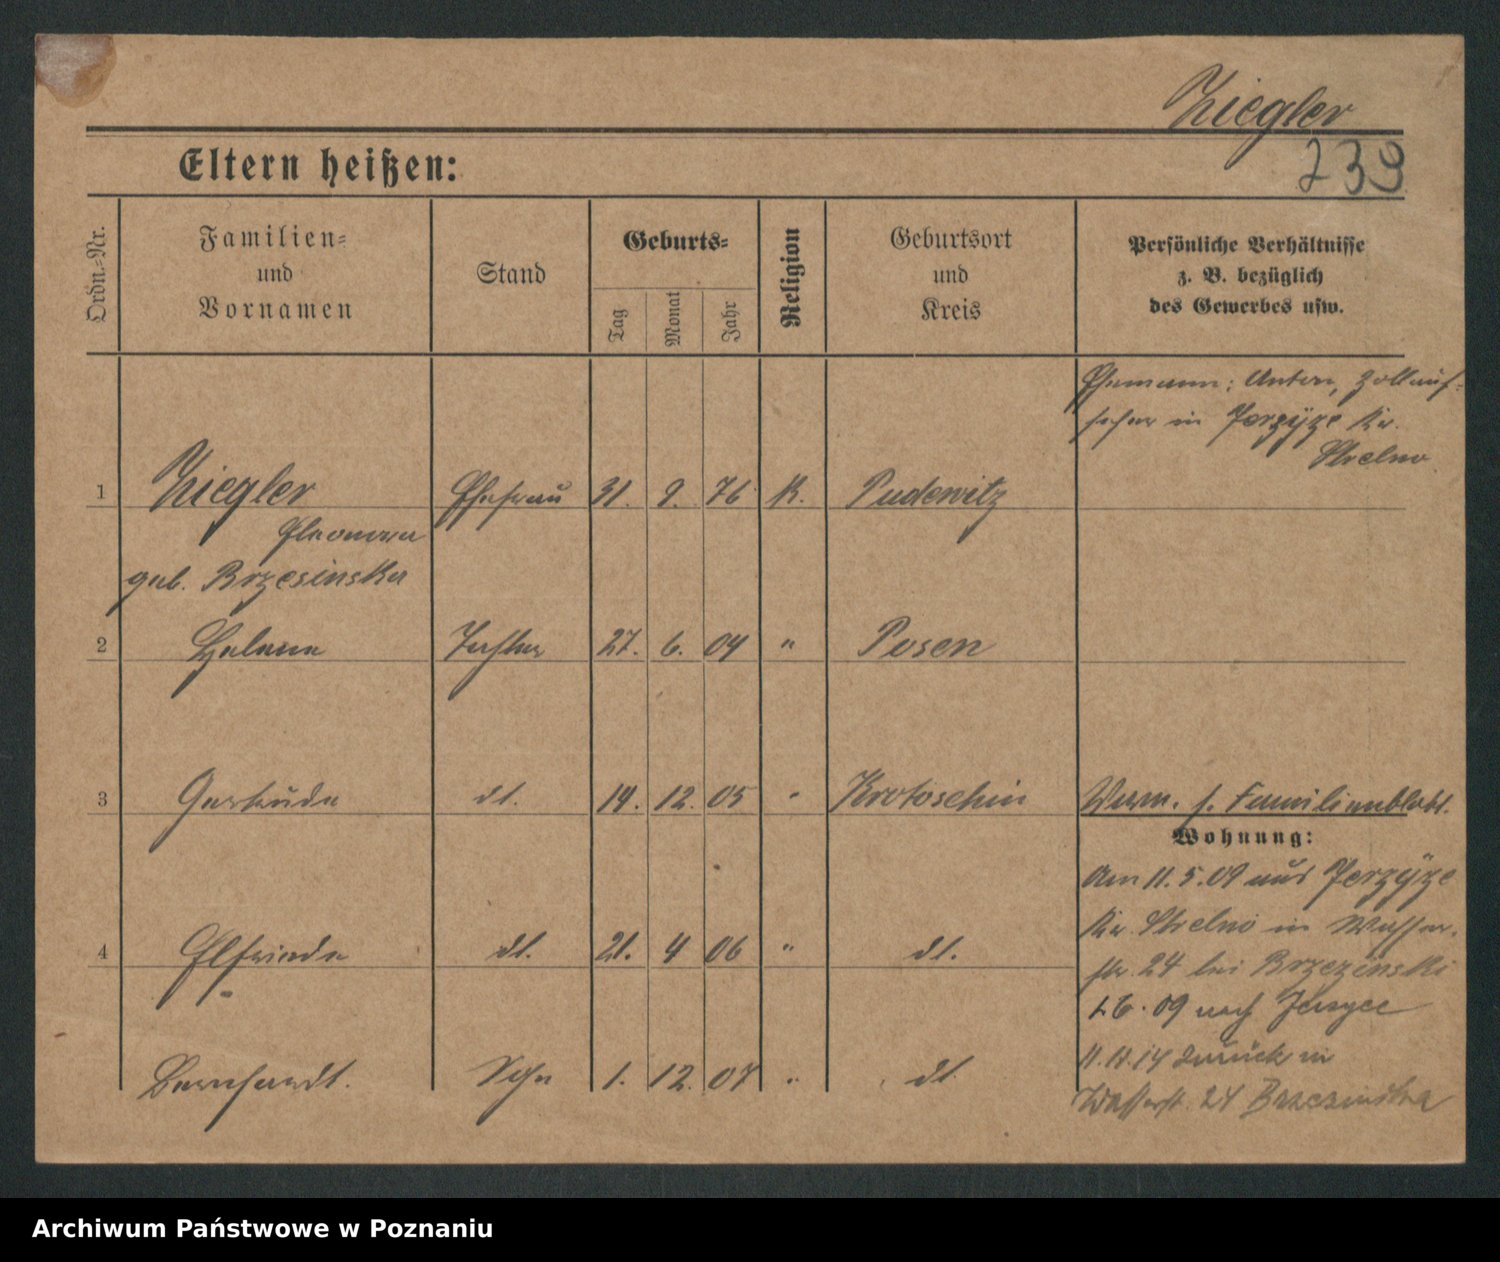 Ziegler
239
Eltern heißen:
Ordn.-Nr.
Familien-
und
Vornamen
Stand
Geburts-
Tag
Monat
Jahr
Religion
Geburtsort
und
Kreis
Persönliche Verhältnisse
z. B. bezüglich
des Gewerbes usw.
Ehemann: Anton, Zollauf-
seher in Jerzyze Kr.
Strelno
1 Ziegler Ehefrau 31. 8. 76 K. Pudewitz
Eleonora
geb. Brzesinska
2 Helene Tochter 27. 6. 04 " Posen
3 Gertrude dt. 14. 12. 05 " Krotoschin Verm. s. Familienblatt.
Wohnung:
Am 11.5.09 aus Jerzyze
Kr. Strelno in Wasser-
4 Elfriede dt. 21. 4 06 " dt.
str. 24 bei Brzezinski
1.6.09 nach
11.11.14 zurück in
Bernhardt. Sohn 1. 12. 07 " dt.
Wasserstr. 24 Brzezinska
Archiwum Państwowe w Poznaniu